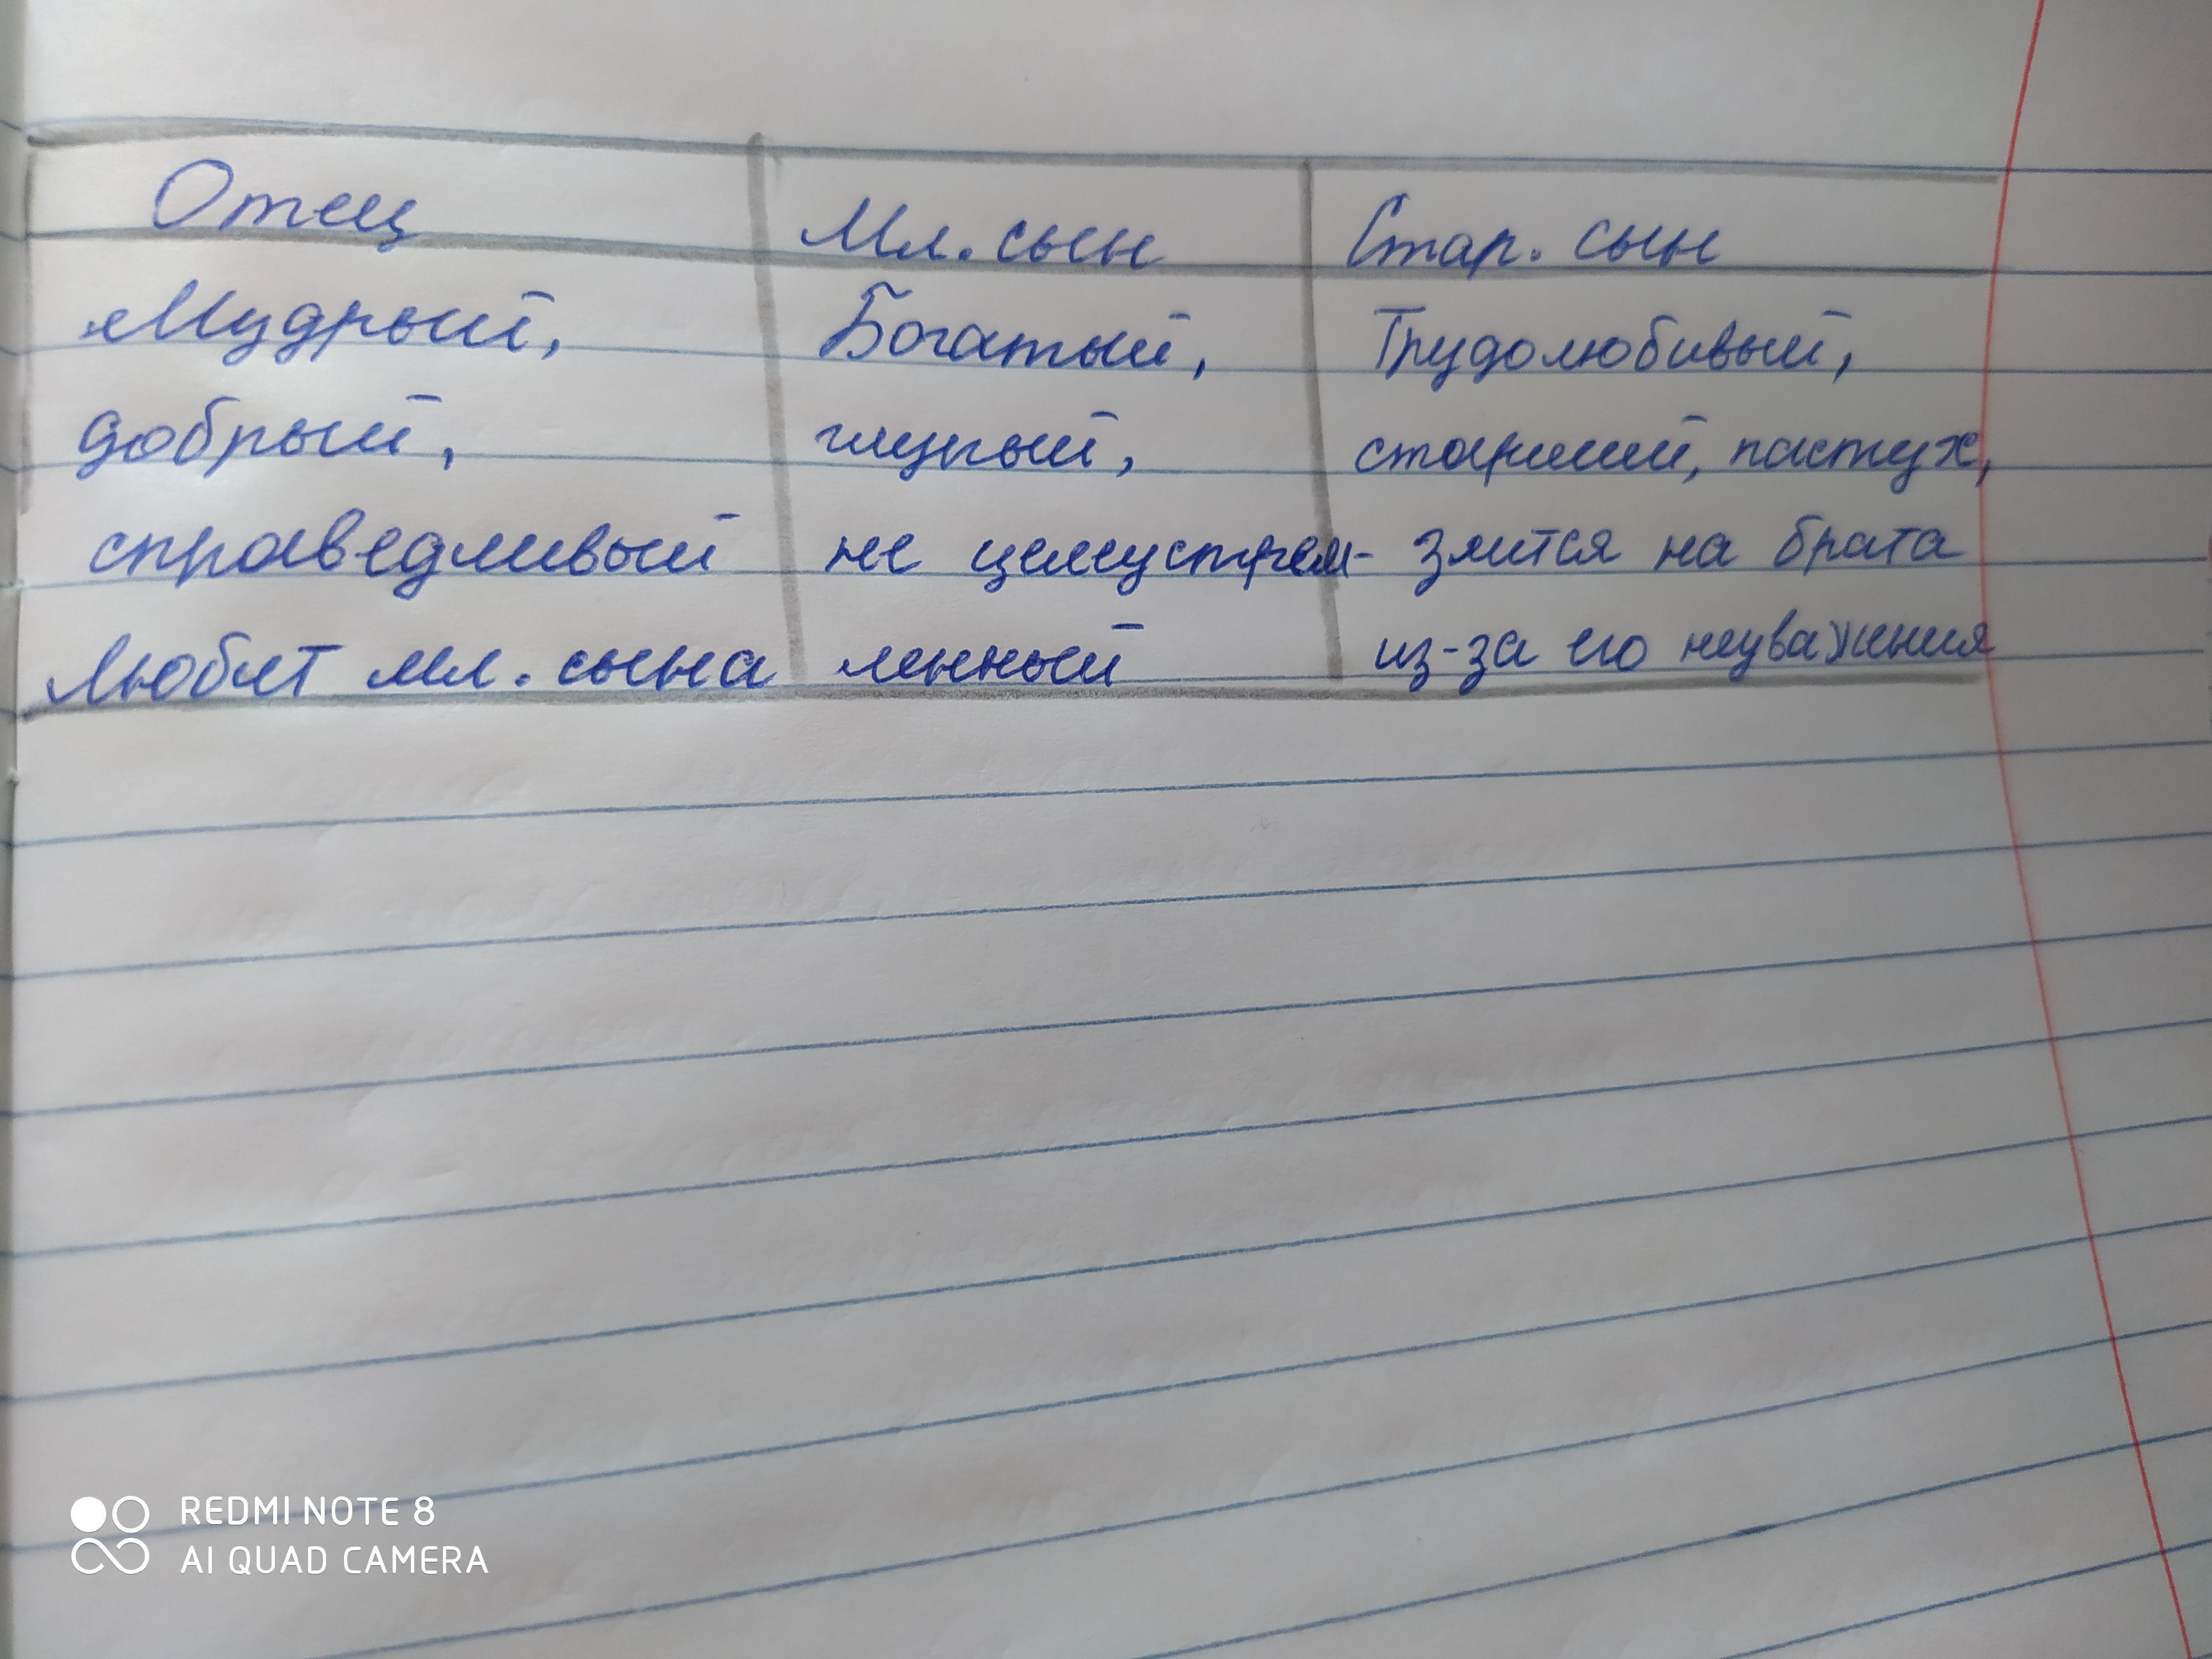 Отец
Мл. сын
Стар. сын
Мудрый,
добрый,
справедливый
Любит мл. сына
Богатый,
глупый,
не целеустрем-
ленный
Трудолюбивый,
старший, пастух,
злится на брата
из-за его неуважения
REDMI NOTE 8
AI QUAD CAMERA